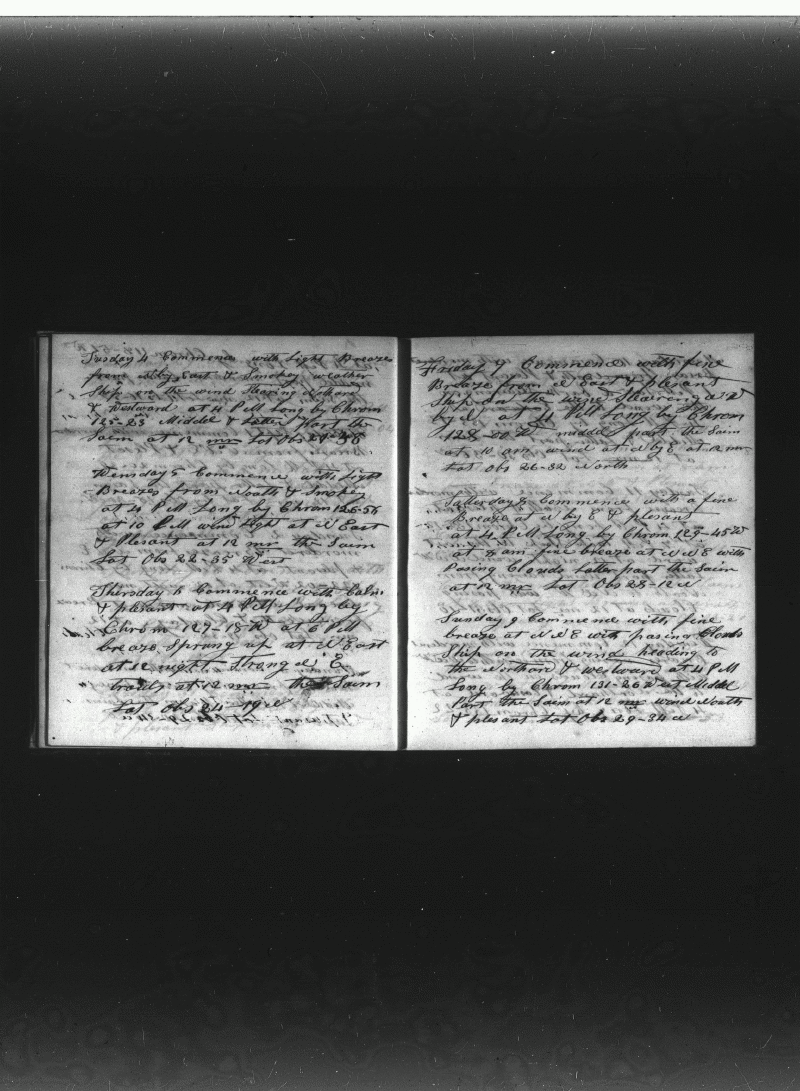 Tusday 4 Commence with Light Breaze
from N by East & Smokey weather
Ship on the wind Stearing Nothard
& Westward at 4 PM Long by Chrom
125-23 Middle & Later part the
Saim at 12 mr Lat Obs 21-38
Wensday 5 Commence with Light
Breazes from North & Smokey
at 4 PM Long by Chrom 126-56
at 10 PM wind Light at N East
& Plesant at 12 mr the Saim
Lat Obs 22-35 West
Thursday 6 Commence with Calm
& plesant at 4 PM Long by
Chrom 127-18 W at 6 PM
breaze Sprung up at N East
at 12 night Strong N E
trads at 12 mr the Saim
Lat Obs 24-19 N
Friday 7 Commence with fine
Breaze from N East & plesant
Ship on the wind Stearing N W
by N at 4 PM Long by Chrom
128-50 W middle part the Saim
at 10 am wind at N by E at 12 mr
Lat Obs 26-32 North
Satterday 8 Commence with a fine
Breaze at N by E & plesant
at 4 PM Long by Chrom 129-45 W
at 8 am fine breaze at N N E with
Pasing Clouds Latter part the Saim
at 12 mr Lat Obs 28-12 N
Sunday 9 Commence with fine
breaze at N N E with pasing Clouds
Ship on the wind heading to
the Northard & westward at 4 PM
Long by Chrom 131-26 W at Middel
Part the Saim at 12 mr wind North
& plesant Lat Obs 29-34 N